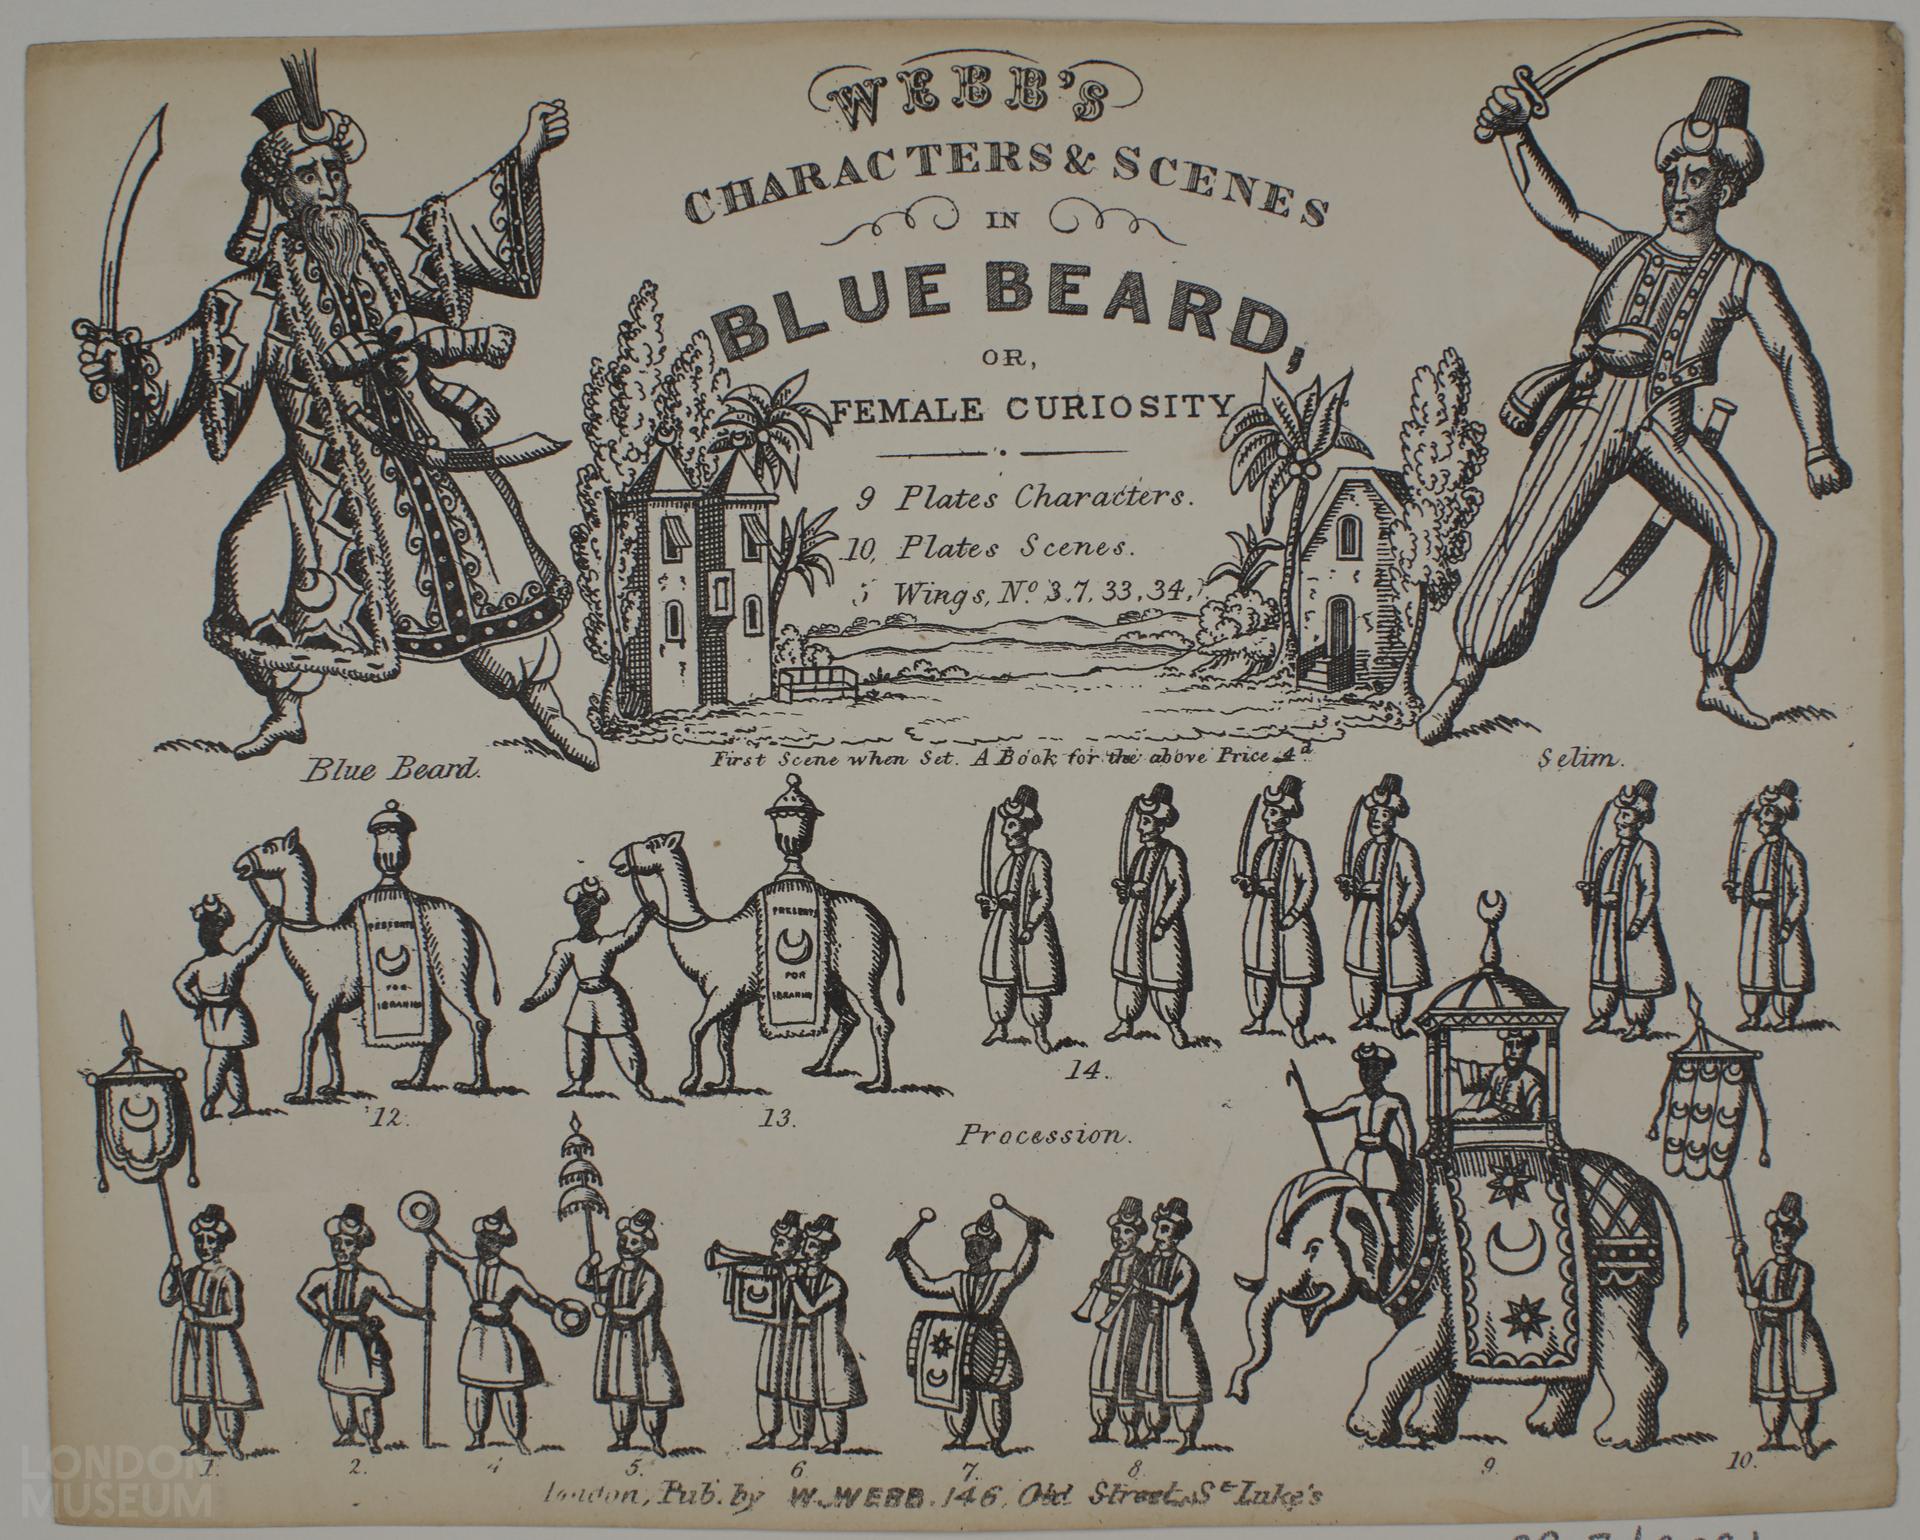 WEBB'S
CHARACTERS & SCENES
IN
BLUE BEARD,
OR,
FEMALE CURIOSITY
9 Plates Characters.
10, Plates Scenes.
5 Wings, No. 3.7, 33, 34,
First Scene when Set. A Book for the above Price 4d
Blue Beard.
Selim.
PRESENTS
FOR
IBRAHIM
PRESENTS
FOR
IBRAHIM
12.
13.
14.
Procession.
1.
2.
4
5.
6
7.
8
9
10.
London, Pub. by W. WEBB. 146, Old Street, St Luke's
LONDON
MUSEUM